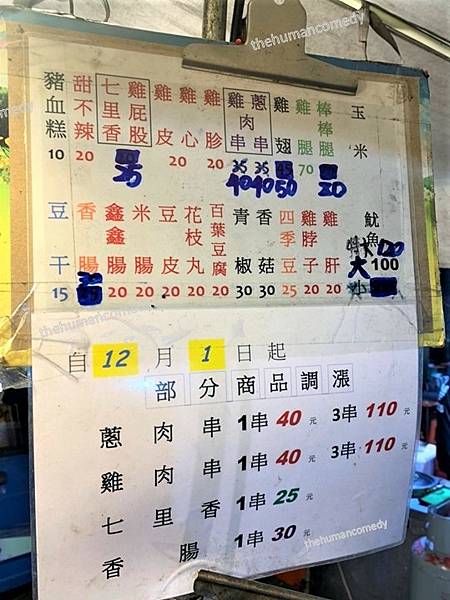 thehumancomedy
豬血糕 甜不辣 七里香 雞屁股 雞皮 雞心 雞胗 雞肉串 蔥肉串 雞翅 雞腿 棒棒腿 玉米
10 20 35 20 20 35 35 70 20
40 40 50
豆干 香腸 鑫鑫腸 米腸 豆皮 花枝丸 百葉豆腐 青椒 香菇 四季豆 雞脖子 雞肝 魷魚
特大 120
大 100
小
15 30 20 20 20 20 20 30 30 25 20 20
thehumancomedy
自 12 月 1 日起
部分商品調漲
蔥肉串 1串 40 元 3串 110 元
雞肉串 1串 40 元 3串 110 元
七里香 1串 25 元
香腸 1串 30 元
thehumancomedy